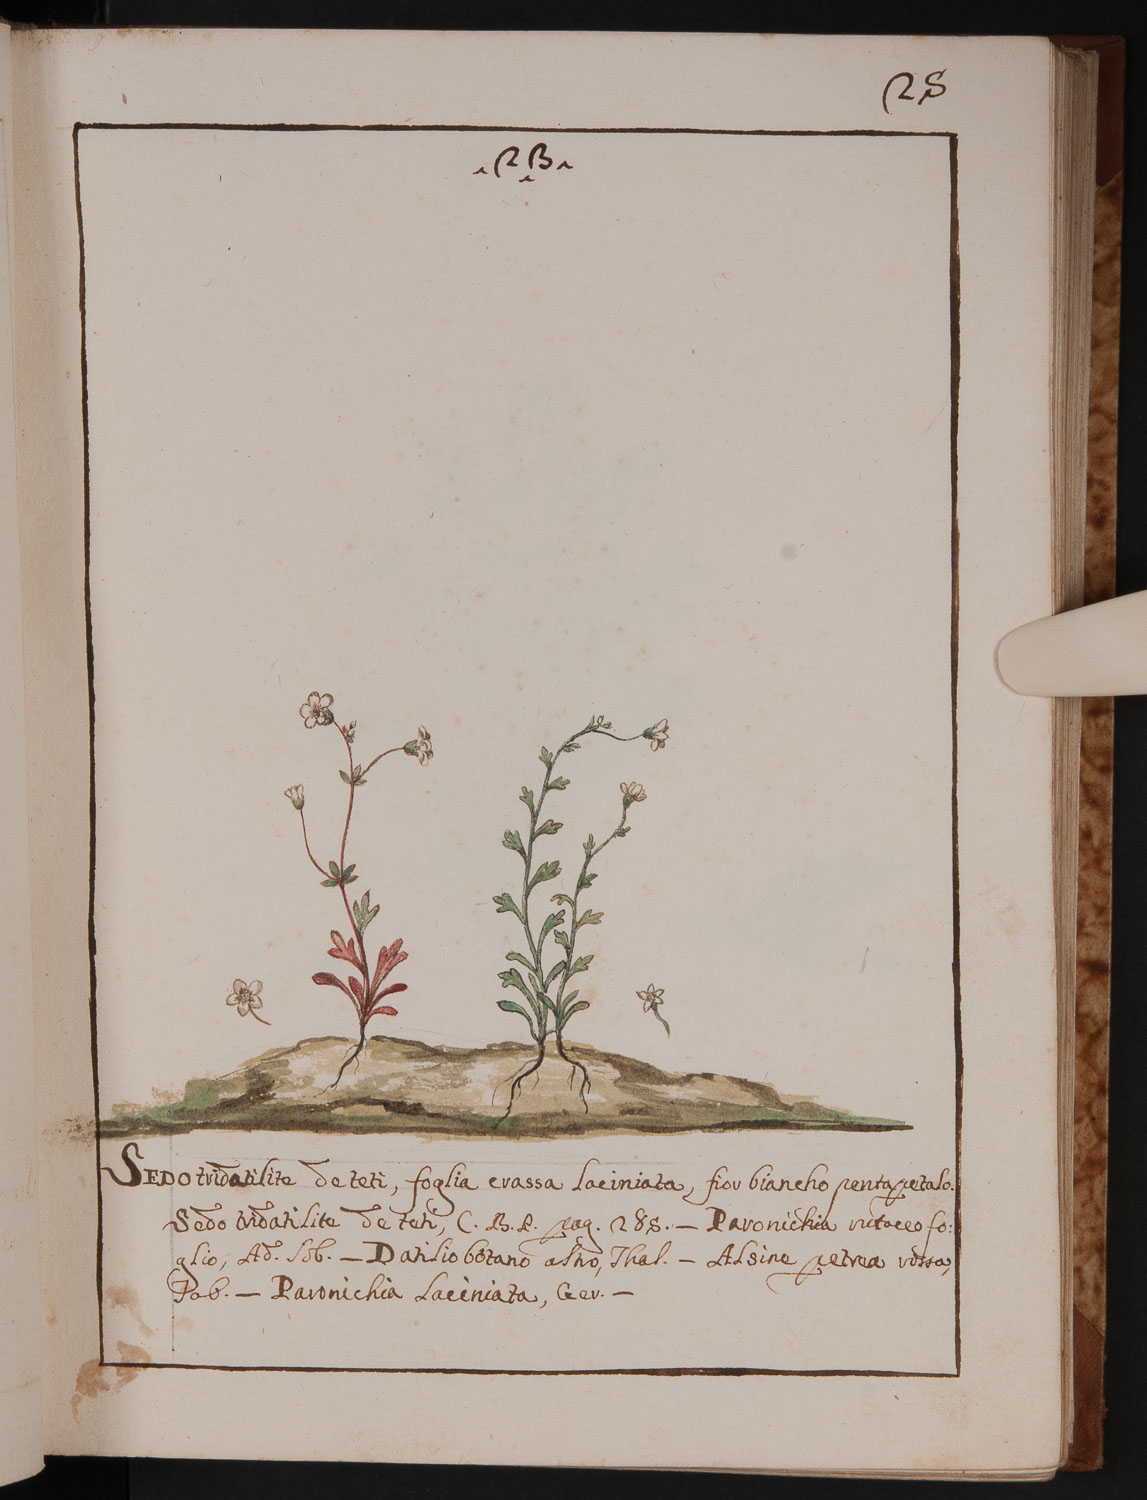 25
.23.
SEDO tridatilite de teti, foglia crassa laciniata, fior biancho pentapetalo.
Sedo tridatilite de teti, C. B. P. pag. 285. — Paronichia rutaceo fo:
glio, Ad. lob. — Datilio botano altro, Thal. — Alsine petrea rossa,
Tab. — Paronichia laciniata, Ger. —